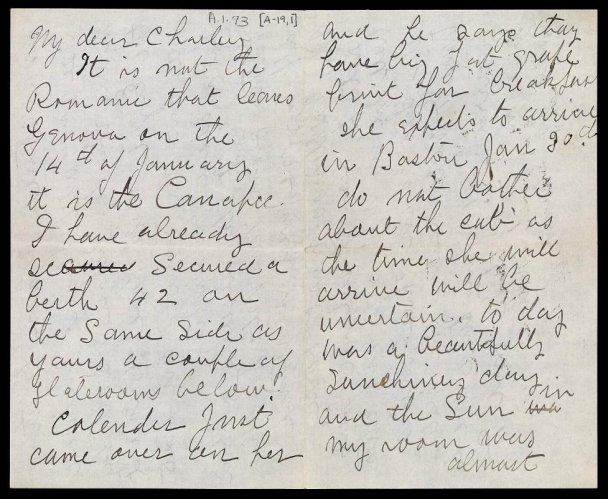 A.1.93 [A-19,1]
My dear Charley
It is not the
Romanic that leaves
Genova on the
14th of January
it is the Canopic.
I have already
Secured a
berth 42 on
the Same Side as
yours a couple of
Staterooms below.
Calender Just
came over on her
and he says they
have big fat grape
fruit for breakfast
she expects to arrive
in Boston Jan 30th
do not bother
about the cab as
the time she will
arrive will be
uncertain. to day
was a beautifully
Sunshiney day
and the Sun in
my room was
almost